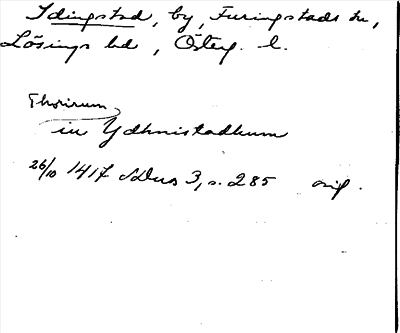 Idingstad, by, Furingstads sn,
Lösings hd, Österg. l.
Thorirum
in Ydhnistadhum
26/10 1417 SDns 3, s. 285 orig.